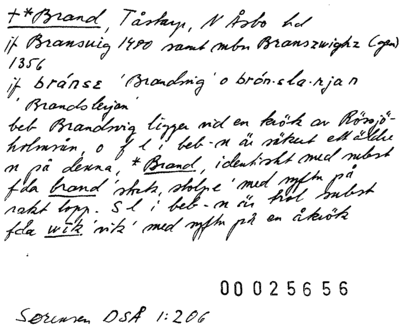 †*Brand, Tåstarp, N Åsbo hd
jf Bransuig 1490 samt mbn Branszwighz (gen)
1356
jf bránsɛ 'Brandsvig' o brón·sla·rjan
'Brandslerjan'
beb Brandsvig ligger vid en krök av Rössjö-
holmsån, o f l i beb-n är säkert ett äldre
n på denna, *Brand, identiskt med subst
fda brand 'stock, stolpe' med syftn på
rakt lopp. S l i beb-n är trol subst
fda wik 'vik' med syftn på en åkrök
00025656
Sørensen DSÅ 1:206